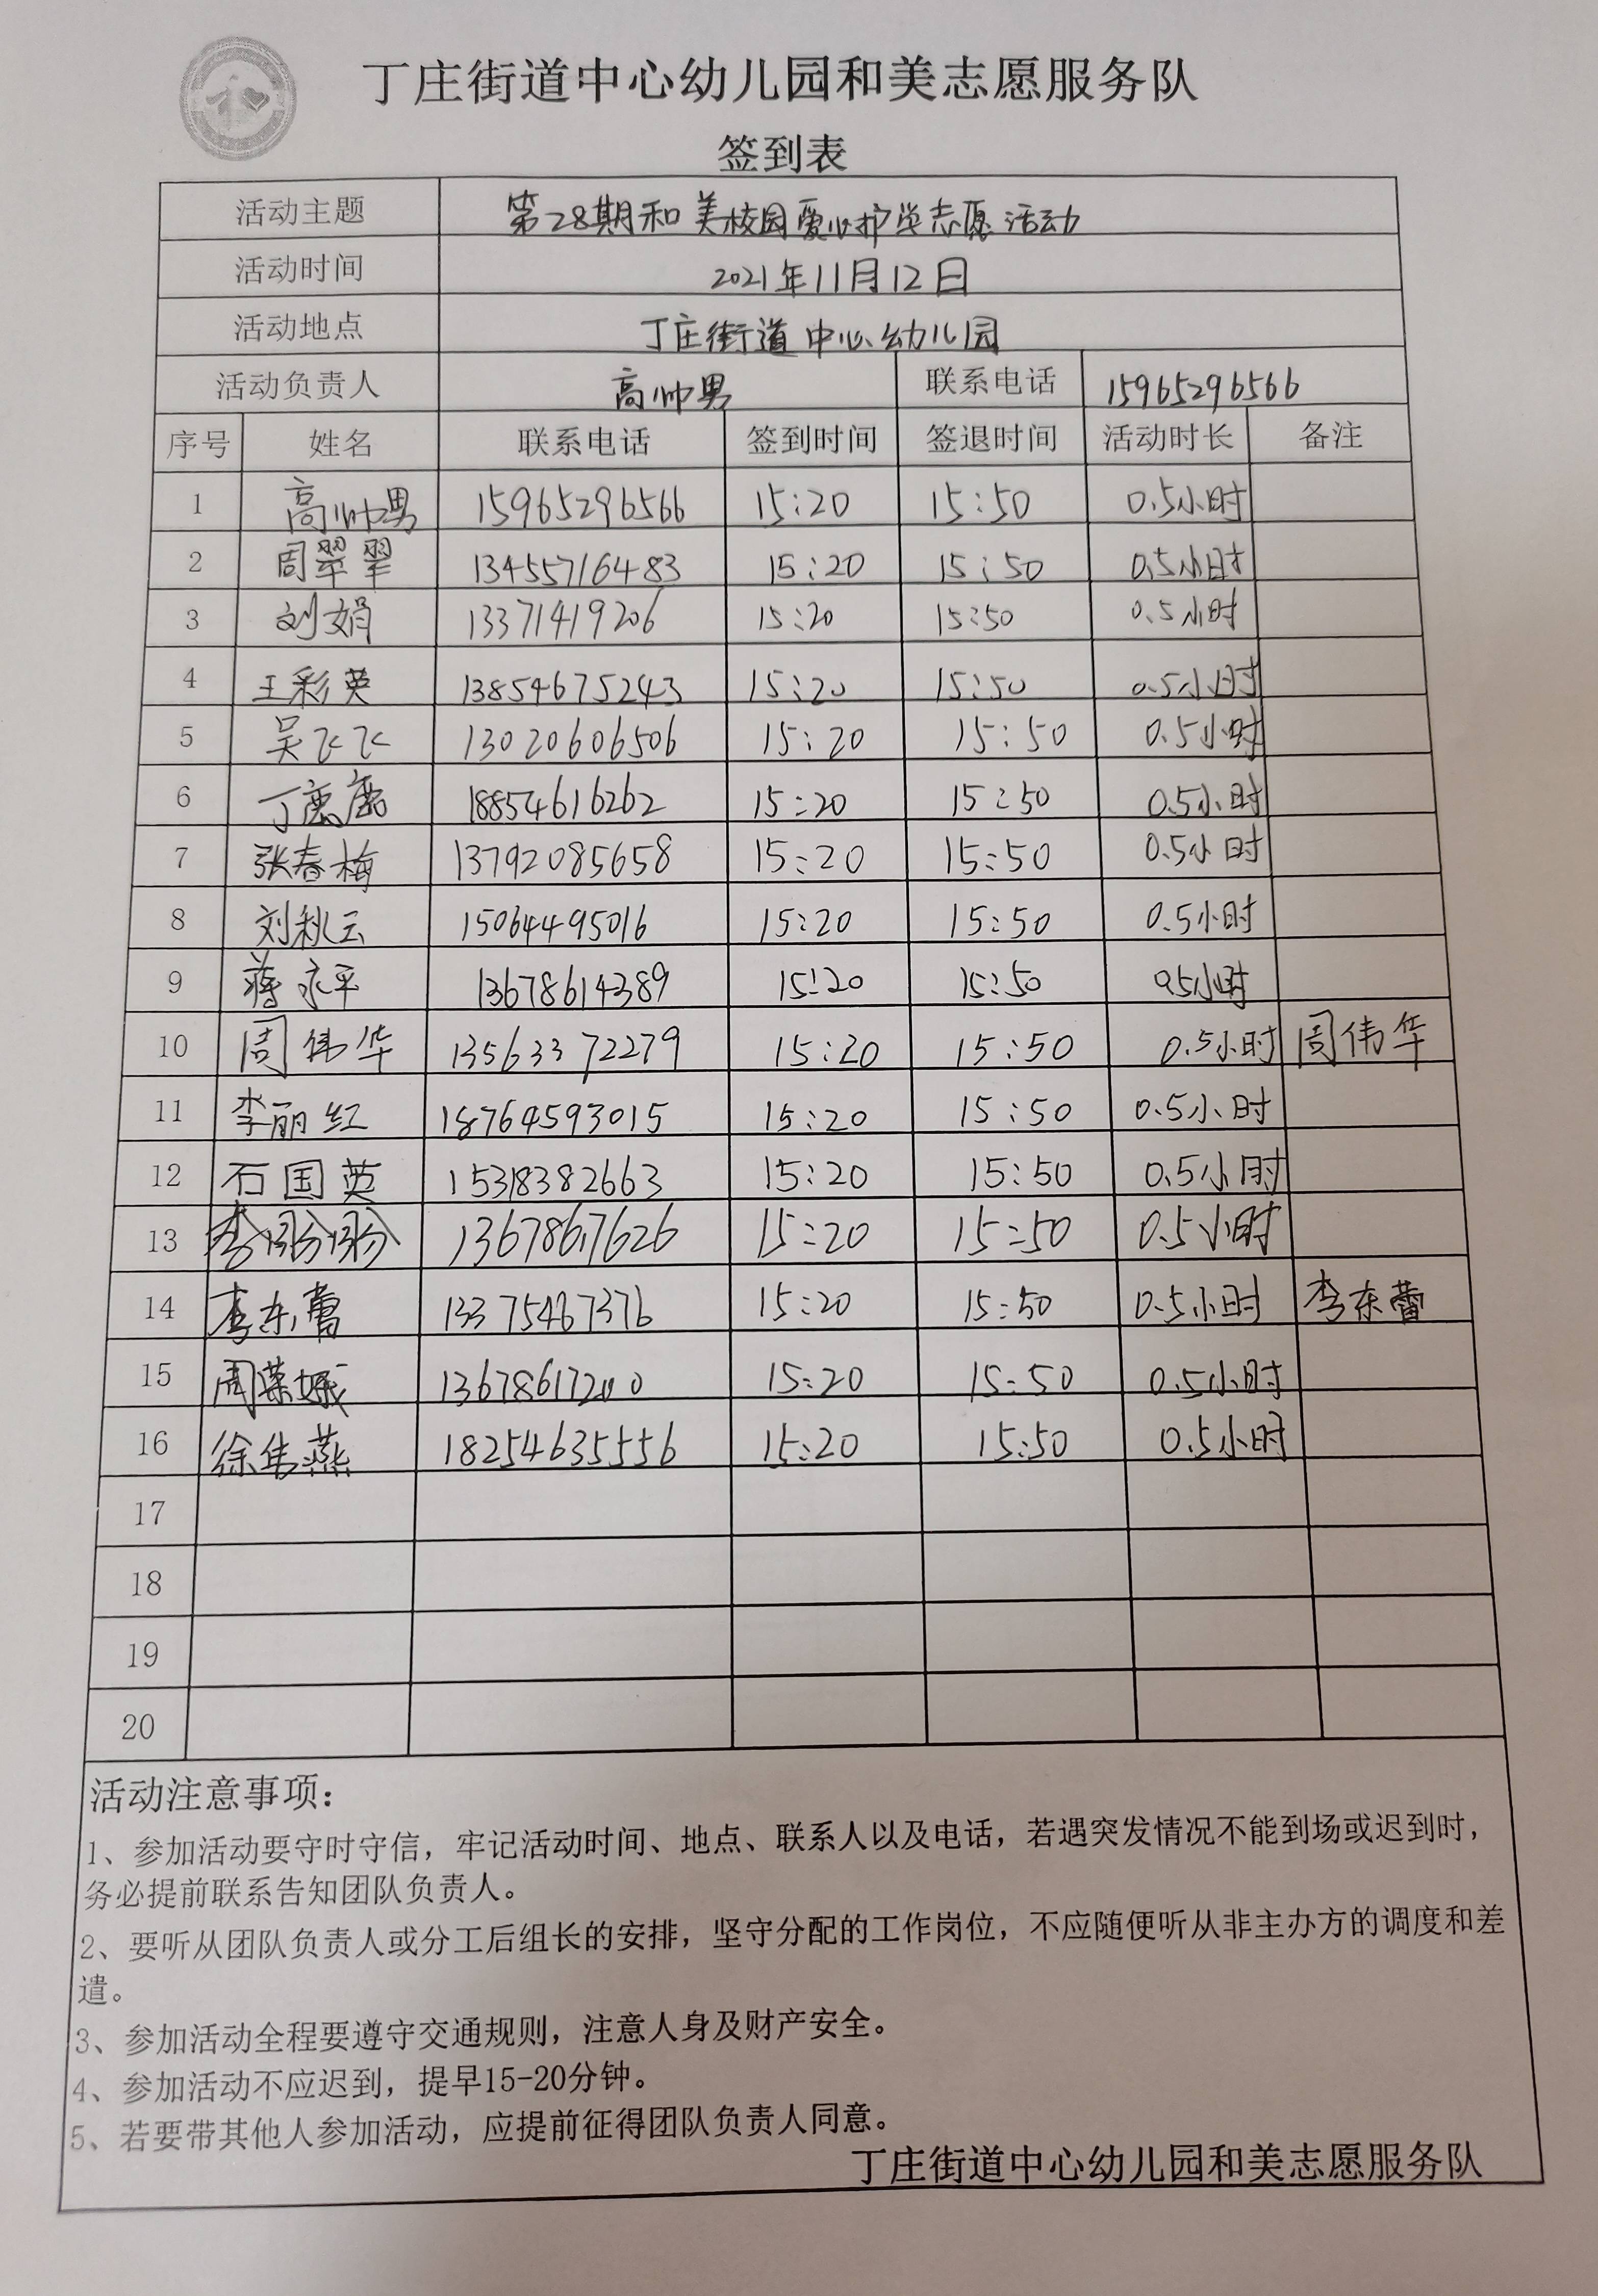 丁庄街道中心幼儿园和美志愿服务队
签到表
活动主题 第28期和美校园爱心护学志愿活动
活动时间 2021年11月12日
活动地点 丁庄街道中心幼儿园
活动负责人 高帅男 联系电话 15965296566
序号 姓名 联系电话 签到时间 签退时间 活动时长 备注
1 高帅男 15965296566 15:20 15:50 0.5小时
2 周翠翠 13455716483 15:20 15:50 0.5小时
3 刘娟 13371419206 15:20 15:50 0.5小时
4 王彩英 13854675243 15:20 15:50 0.5小时
5 吴飞飞 13020606506 15:20 15:50 0.5小时
6 丁 18854616262 15:20 15:50 0.5小时
7 张春梅 13792085658 15:20 15:50 0.5小时
8 刘秋云 15064495016 15:20 15:50 0.5小时
9 蒋永平 13678614389 15:20 15:50 0.5小时
10 周伟华 13563372279 15:20 15:50 0.5小时 周伟华
11 李丽红 18764593015 15:20 15:50 0.5小时
12 石国英 15318382663 15:20 15:50 0.5小时
13 李 13678617626 15:20 15:50 0.5小时
14 李东蕾 13375467376 15:20 15:50 0.5小时 李东蕾
15 周荣娥 15:20 15:50 0.5小时
16 徐伟燕 18254635556 15:20 15:50 0.5小时
17
18
19
20
活动注意事项：
1、参加活动要守时守信，牢记活动时间、地点、联系人以及电话，若遇突发情况不能到场或迟到时，
务必提前联系告知团队负责人。
2、要听从团队负责人或分工后组长的安排，坚守分配的工作岗位，不应随便听从非主办方的调度和差
遣。
3、参加活动全程要遵守交通规则，注意人身及财产安全。
4、参加活动不应迟到，提早15-20分钟。
5、若要带其他人参加活动，应提前征得团队负责人同意。
丁庄街道中心幼儿园和美志愿服务队